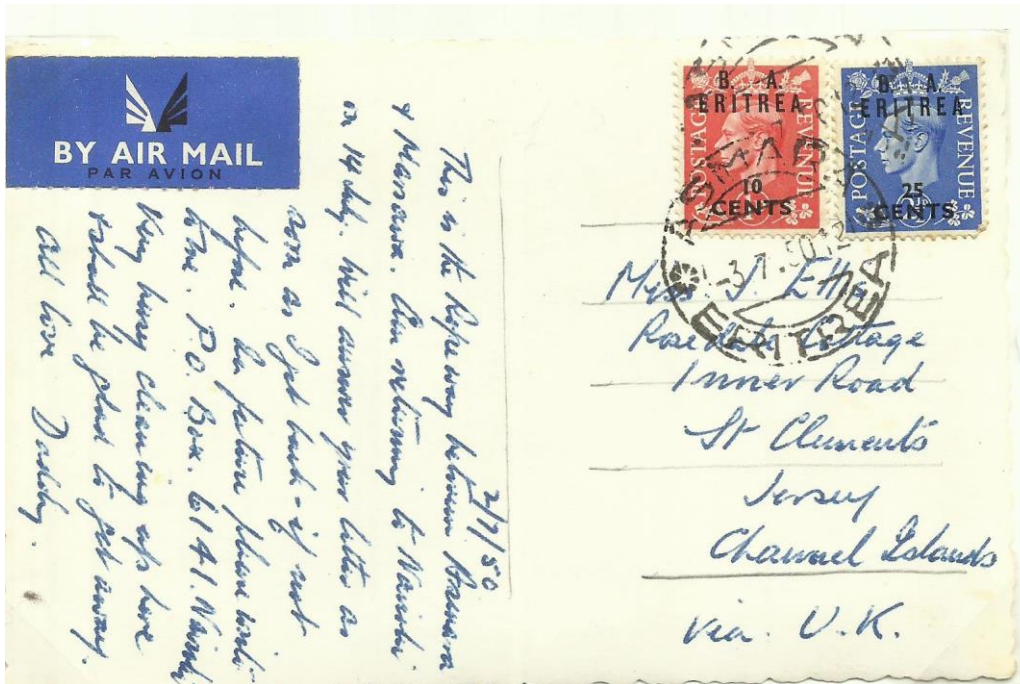 BY AIR MAIL
PAR AVION
2/7/50
This is the Ropeway between Asmara
& Massawa. Am returning to Nairobi
on 14 July. Will answer your letter as
soon as I get back - if not
before. In future please write
to me. P.O. Box. 6141. Nairobi
Very busy clearing up here
& shall be glad to get away.
All love Daddy.
B. A.
ERITREA
POSTAGE REVENUE
10
CENTS
B. A.
ERITREA
POSTAGE REVENUE
25
CENTS
ASMARA
-3.7.50.12
ERITREA
Miss J.
Rosedale Cottage
Inner Road
St Clements
Jersey
Channel Islands
via. U.K.